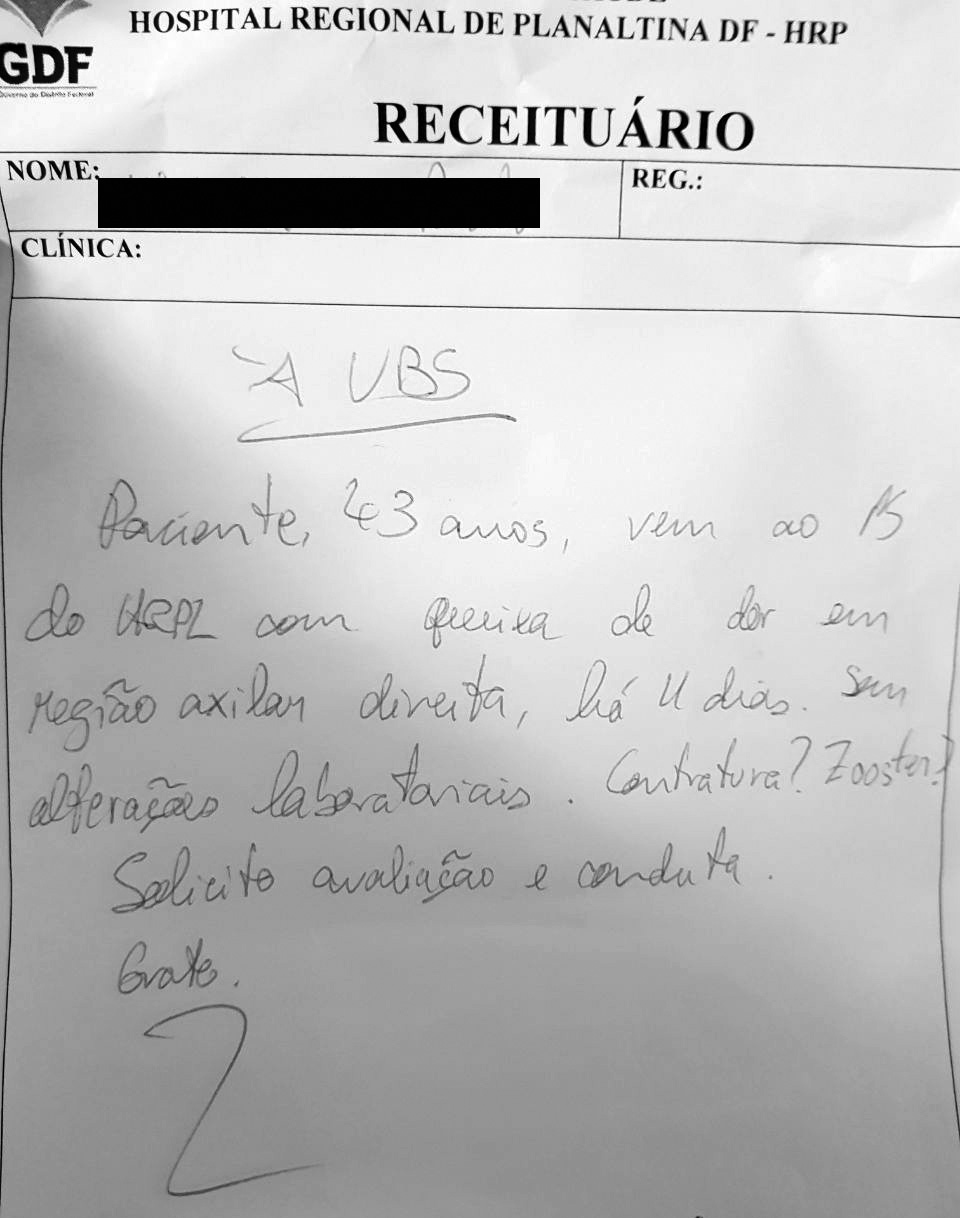 HOSPITAL REGIONAL DE PLANALTINA DF - HRP
GDF
Governo do Distrito Federal
RECEITUÁRIO
NOME:
REG.:
CLÍNICA:
À UBS
Paciente, 43 anos, vem ao PS
do HRPL com queixa de dor em
região axilar direita, há 4 dias. Sem
alterações laboratoriais. Contratura? Zooster?
Solicito avaliação e conduta.
Grato.